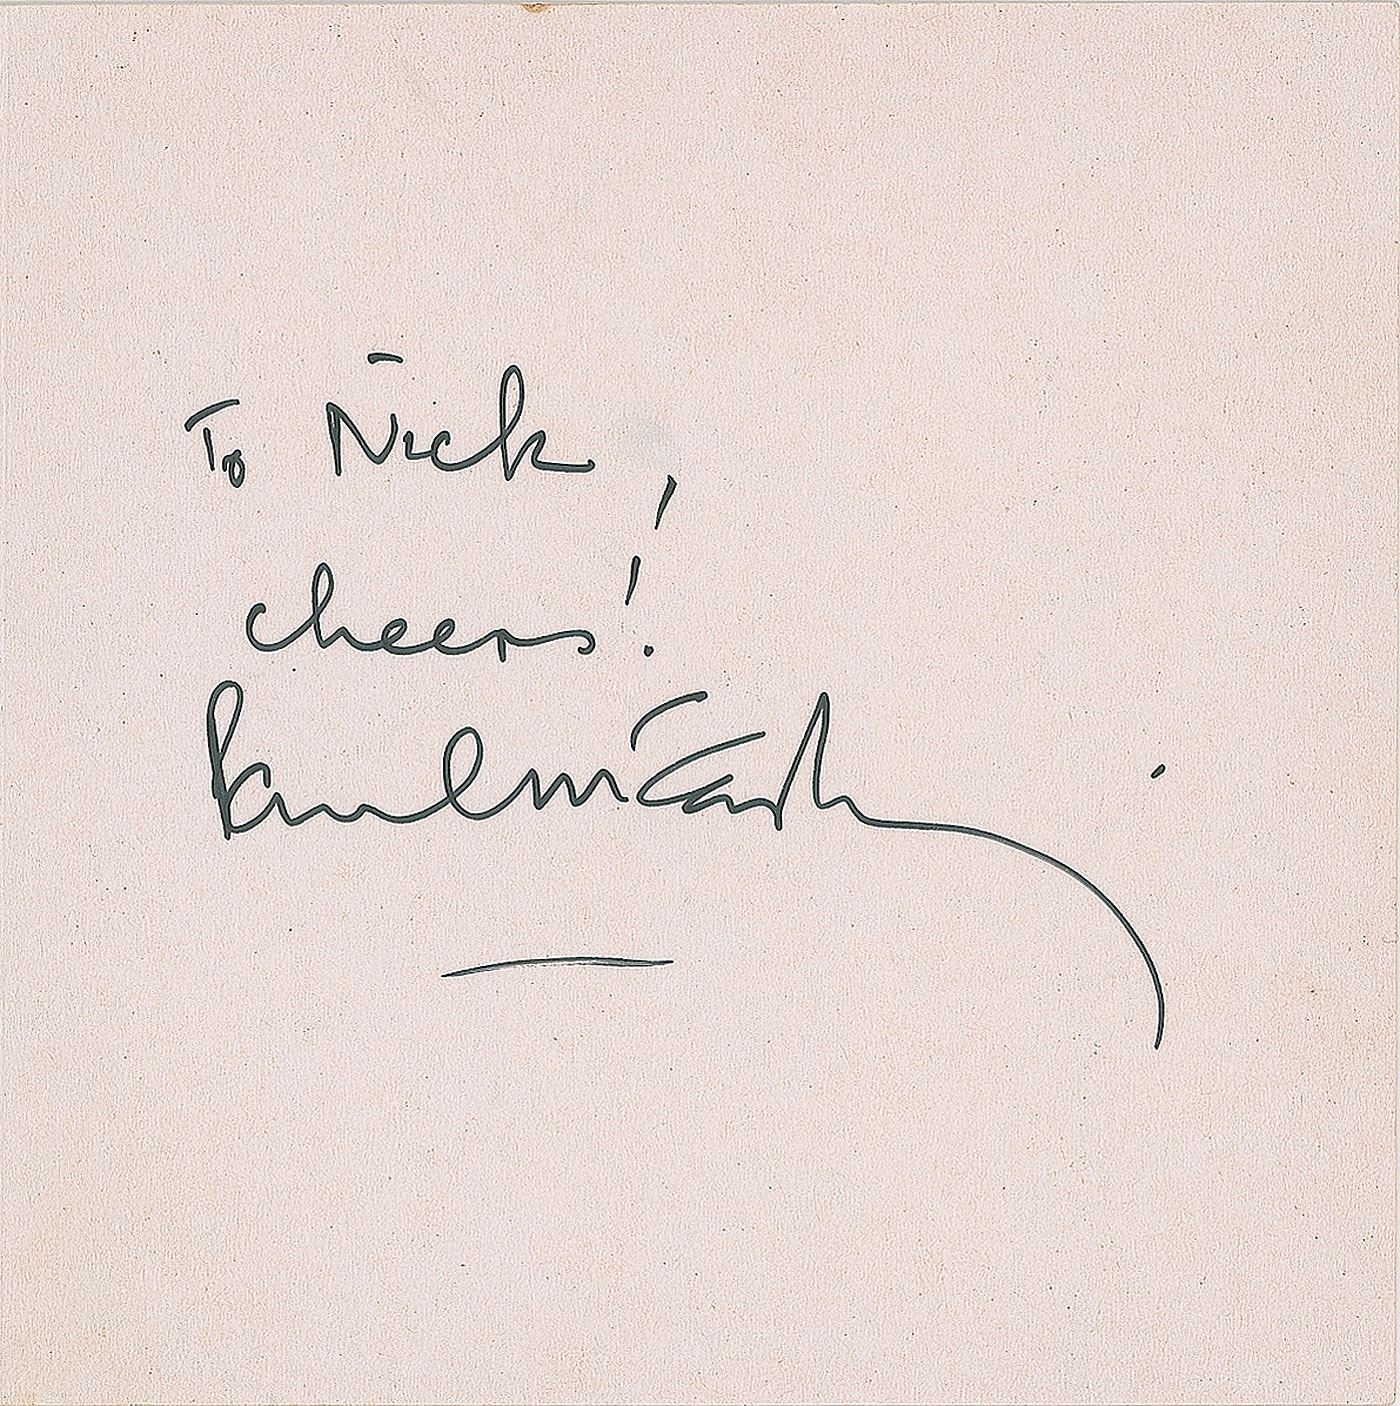 To Nick,
cheers!
Paul McCartney